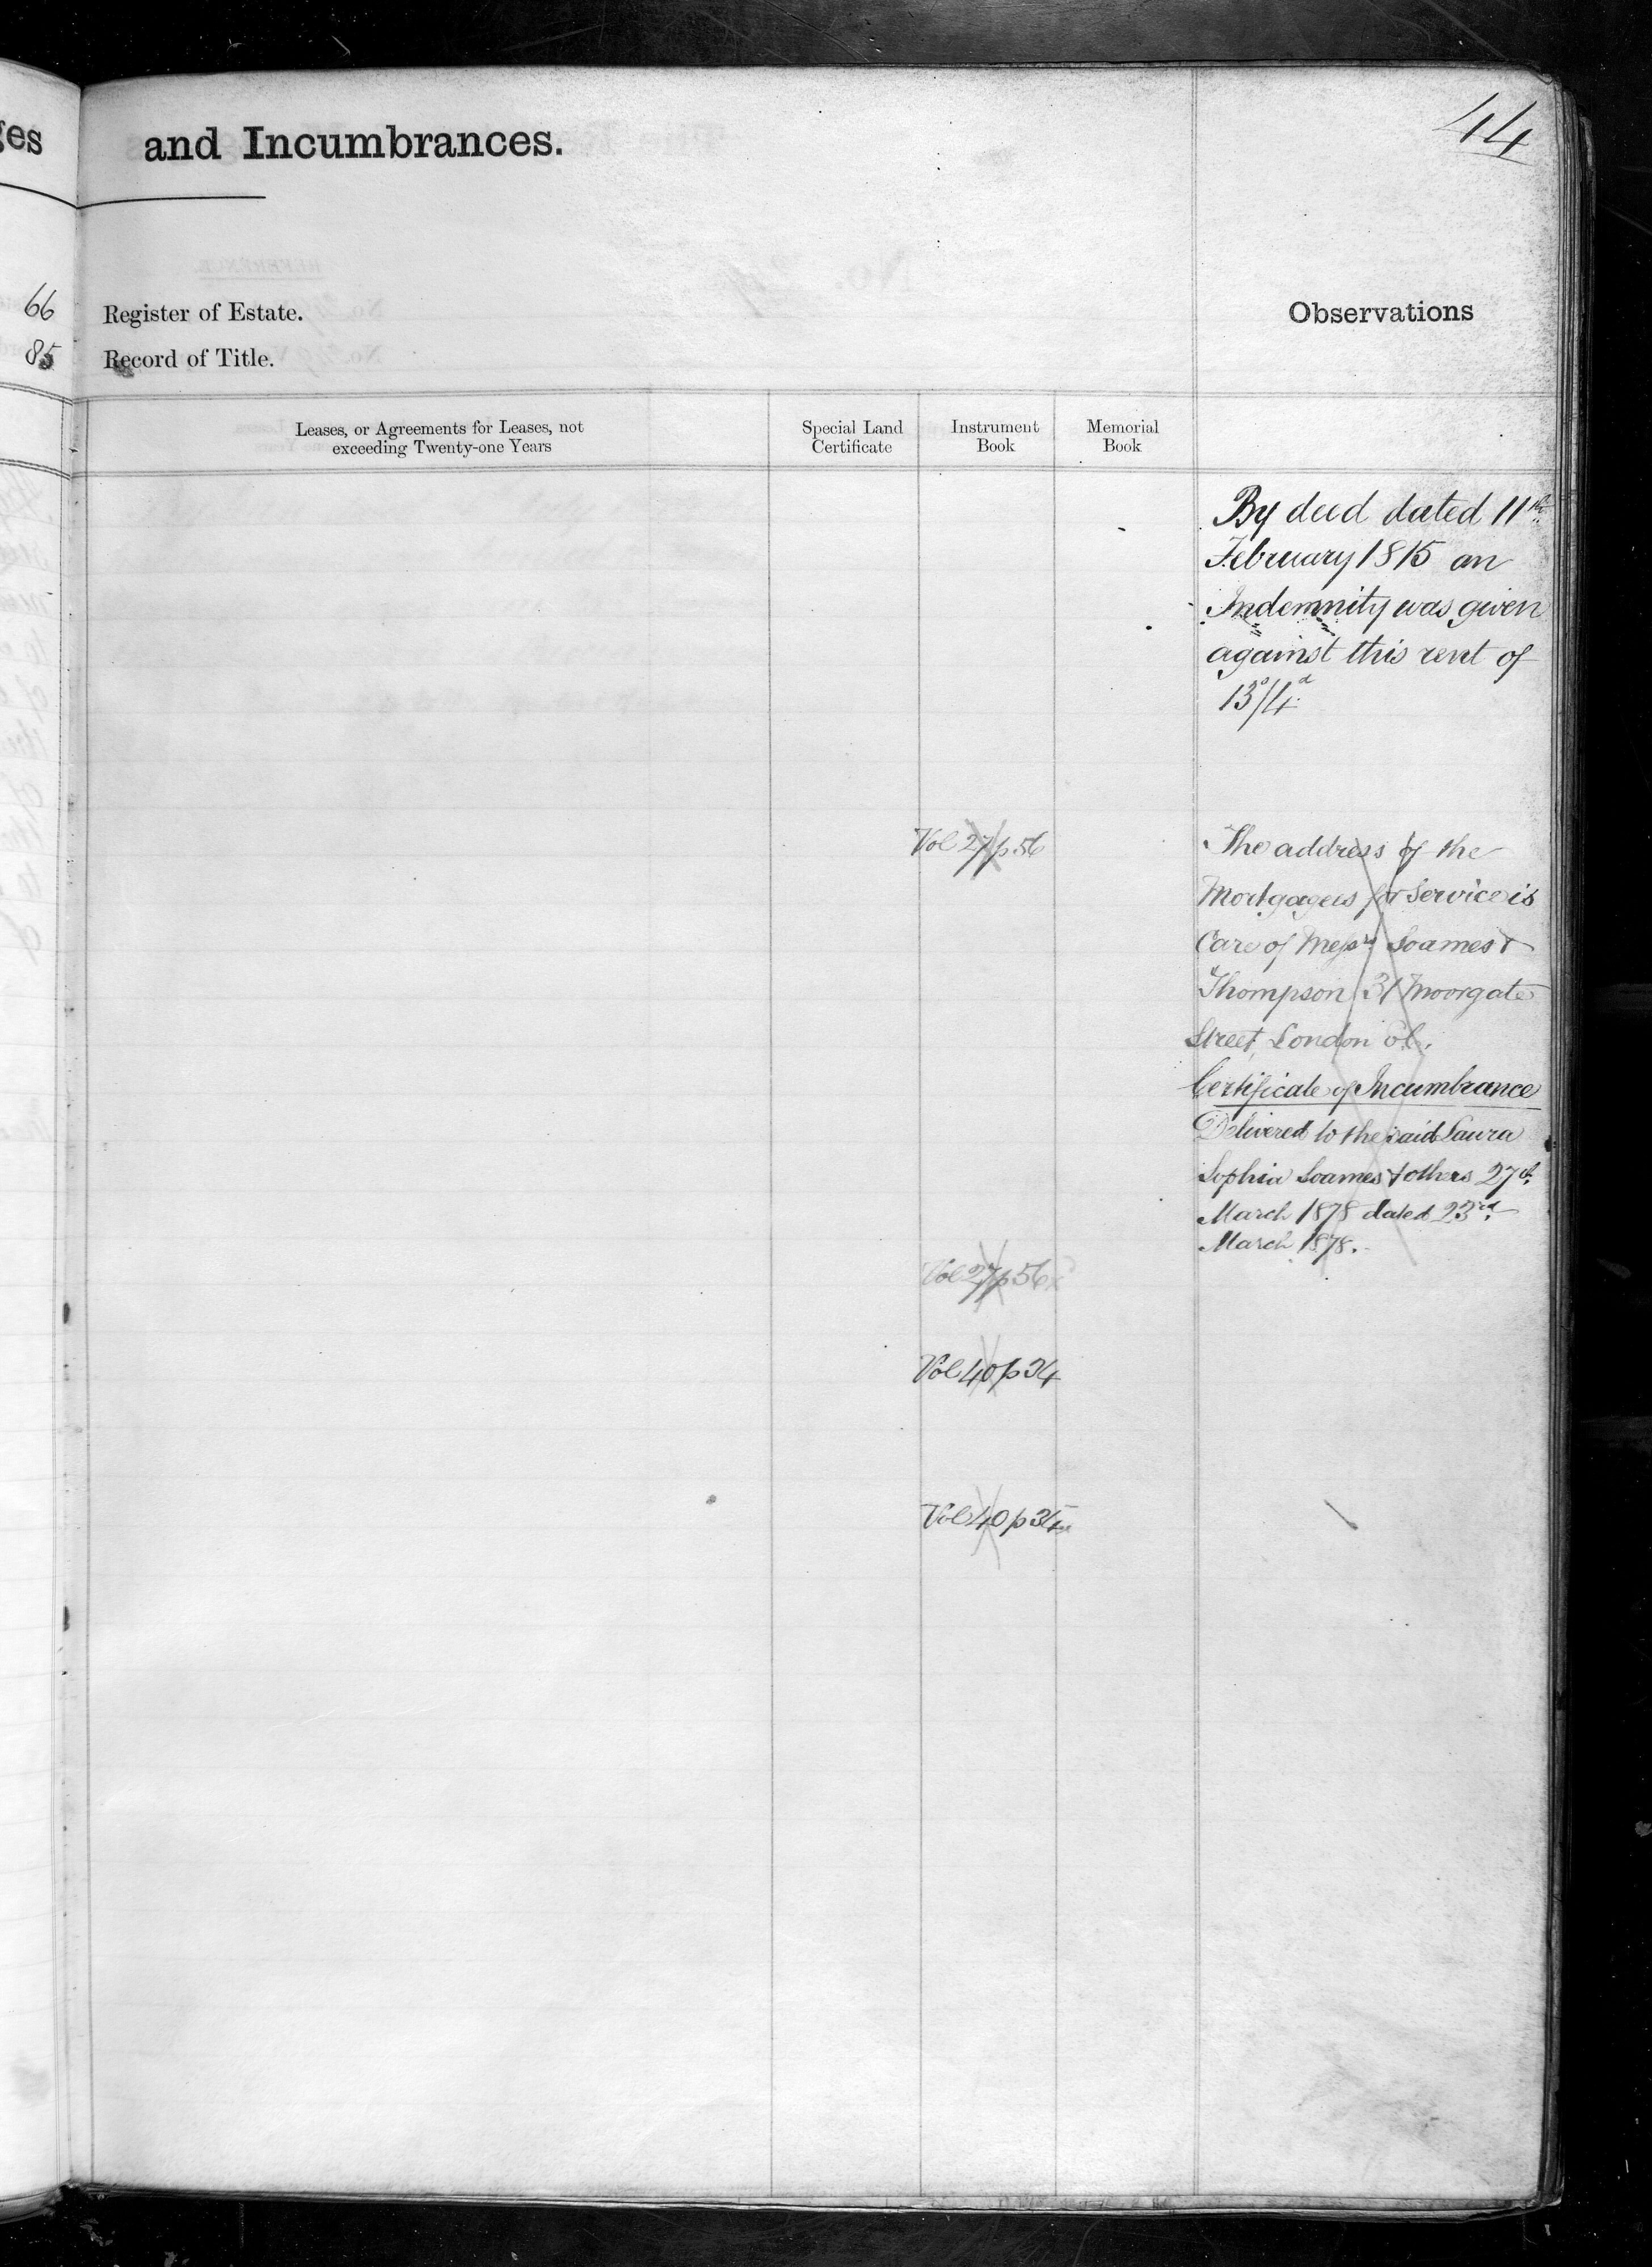 44
ges
and Incumbrances.
66
Register of Estate.
Observations
85
Record of Title.
Leases, or Agreements for Leases, not
exceeding Twenty-one Years
Special Land
Certificate
Instrument
Book
Memorial
Book
By deed dated 11th
February 1815 an
Indemnity was given
against this rent of
13s/4d
Vol 27 p 56
The address of the
Mortgagees for service is
Care of Messrs Soames &
Thompson 31 Moorgate
Street, London
Certificate of Incumbrance
Delivered to the said Laura
Sophia Soames & others 27th
March 1878 dated 23rd
March 1878.
Vol 27 p 56
Vol 40 p 34
Vol 40 p 34